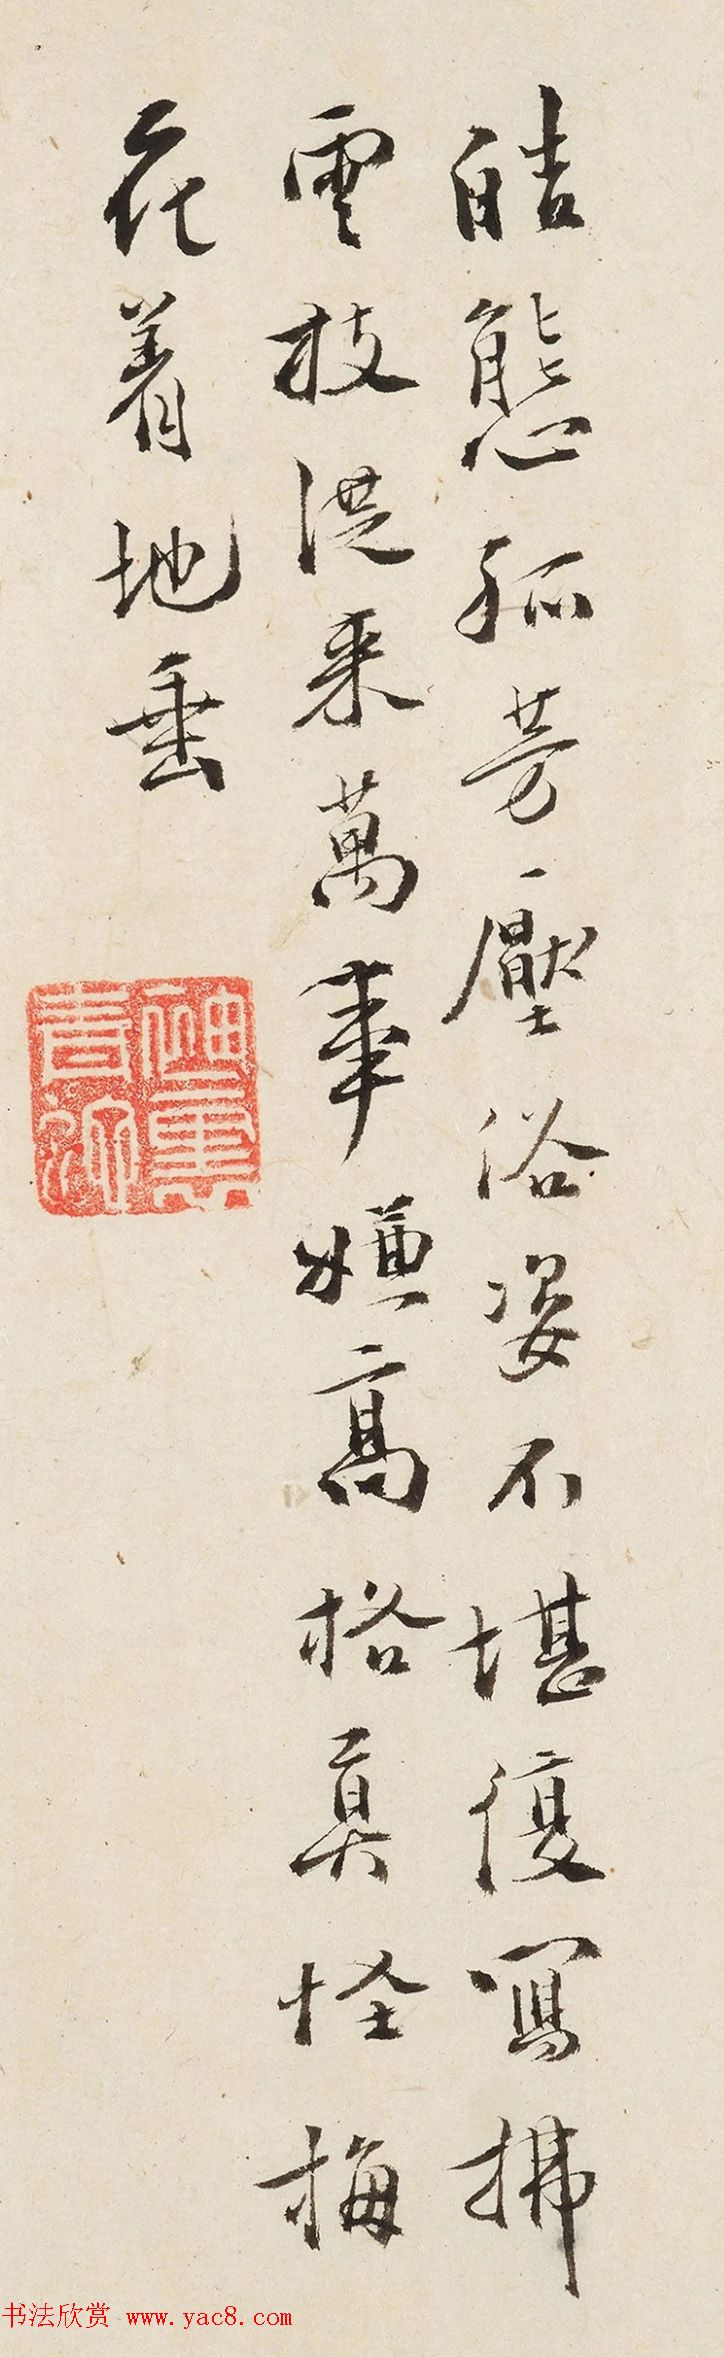 皓態孤芳壓俗姿不堪復寫拂
雲枝從来萬事嫌高格莫怪梅
花着地垂
书法欣赏 www.yac8.com